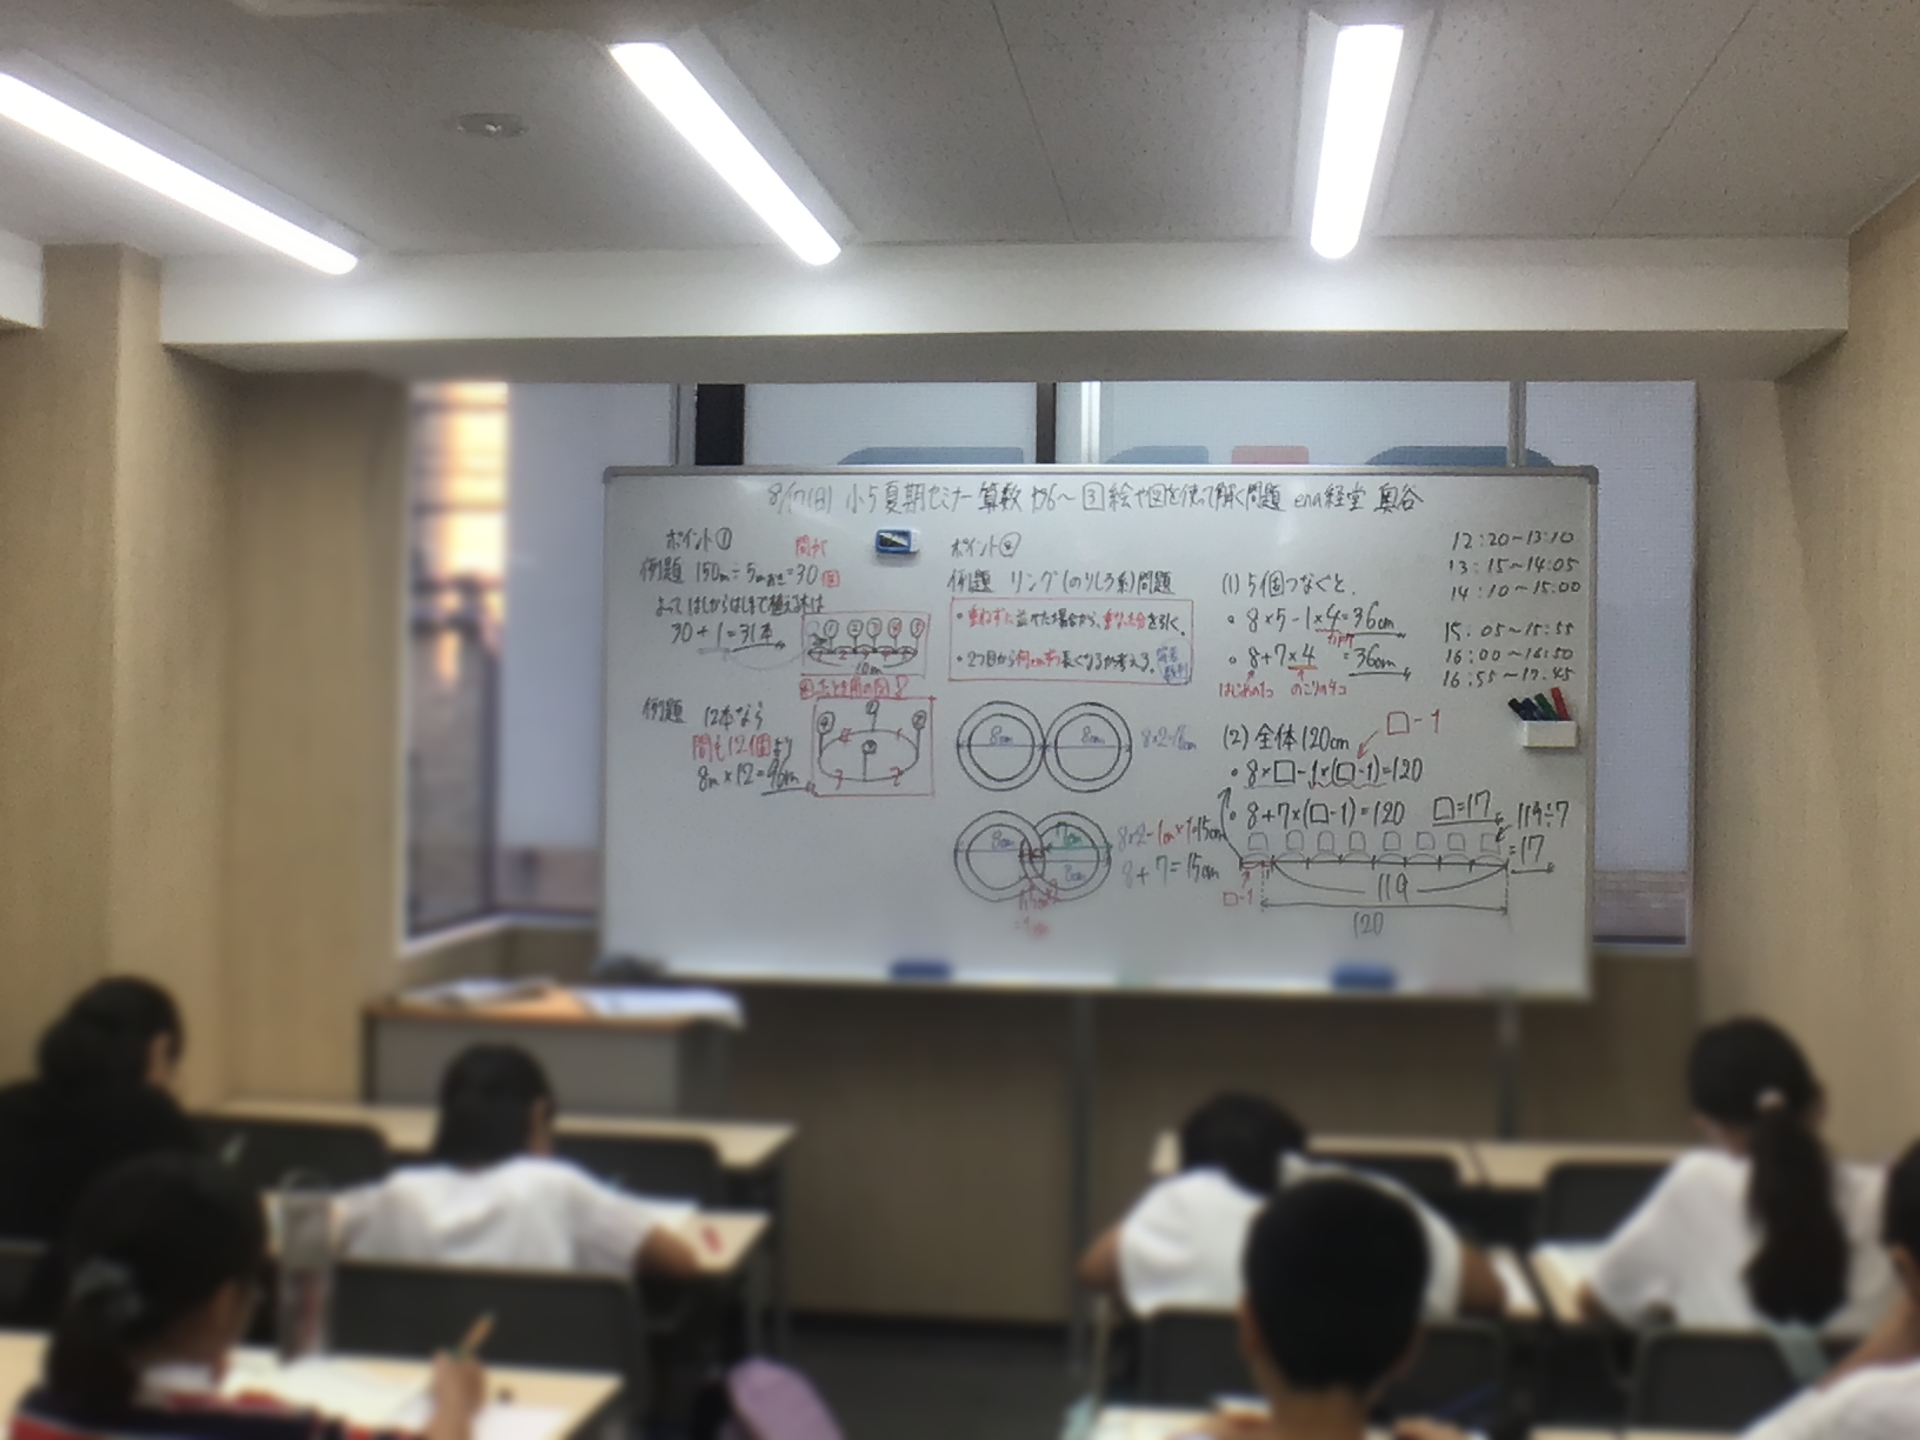 小5夏期セミナー 算数 P36～ 3 絵や図を使って解く問題 ena経堂 奥谷
ポイント①
間が
例題 150m÷5mおき=30個
よってはしからはしまで植える木は
30+1=31本
① ② ③ ④ ⑤
10m
例題 12本なら
間も12個より
8m×12=96m
ポイント②
例題 リング(のりしろ系)問題
・重ねずに並べた場合から、重なる分を引く。
・2つ目から何cmずつ長くなるか考える。
8cm 8cm
8cm 7cm
8cm
8×2-1cm×1=15cm
8+7=15cm
(1) 5個つなぐと、
・8×5-1×4=36cm
・8+7×4=36cm
はじめの1つ のこりの4つ
(2) 全体120cm
□-1
・8×□-1×(□-1)=120
・8+7×(□-1)=120 □=17
119÷7
=17
□-1
119
120
12:20～13:10
13:15～14:05
14:10～15:00
15:05～15:55
16:00～16:50
16:55～17:45